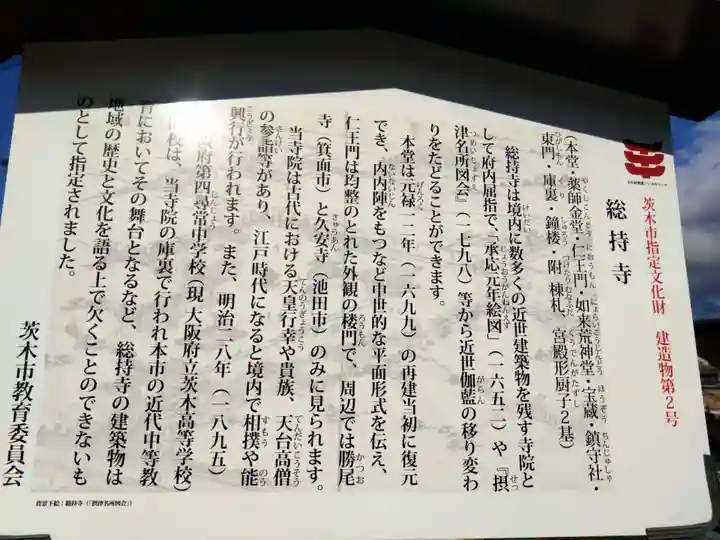 茨木市指定文化財 建造物第2号
総持寺
(本堂・薬師金堂・仁王門・如来荒神堂・宝蔵・鎮守社・
東門・庫裏・鐘楼・附 棟札、宮殿形厨子2基)
総持寺は境内に数多くの近世建築物を残す寺院と
して府内屈指で、「承応元年絵図」(一六五二)や『摂
津名所図会』(一七九八)等から近世伽藍の移り変わ
りをたどることができます。
本堂は元禄一二年(一六九九)の再建当初に復元
でき、内内陣をもつなど中世的な平面形式を伝え、
仁王門は均整のとれた外観の楼門で、周辺では勝尾
寺(箕面市)と久安寺(池田市)のみに見られます。
当寺院は古代における天皇行幸や貴族、天台高僧
の参詣等があり、江戸時代になると境内で相撲や能
興行が行われます。また、明治二八年(一八九五)
府第四尋常中学校(現 大阪府立茨木高等学校)
校は、当寺院の庫裏で行われ本市の近代中等教
育においてその舞台となるなど、総持寺の建築物は
地域の歴史と文化を語る上で欠くことのできないも
のとして指定されました。
茨木市教育委員会
背景下絵:総持寺(『摂津名所図会』)